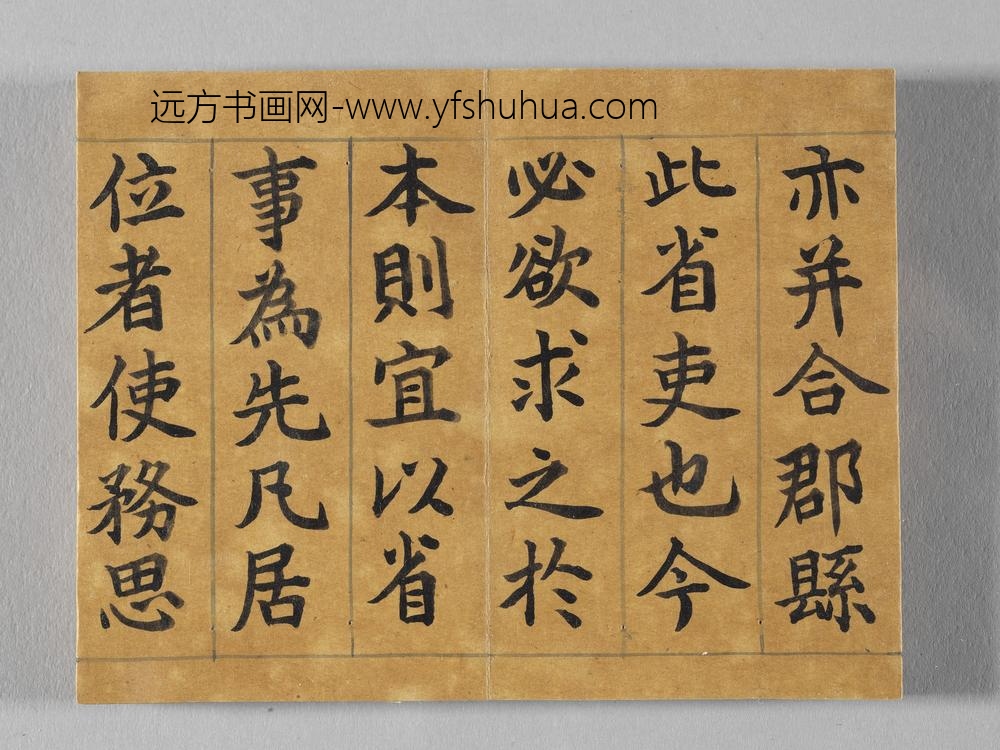 远方书画网-www.yfshuhua.com
亦并合郡縣
此省吏也今
必欲求之於
本則宜以省
事為先凡居
位者使務思